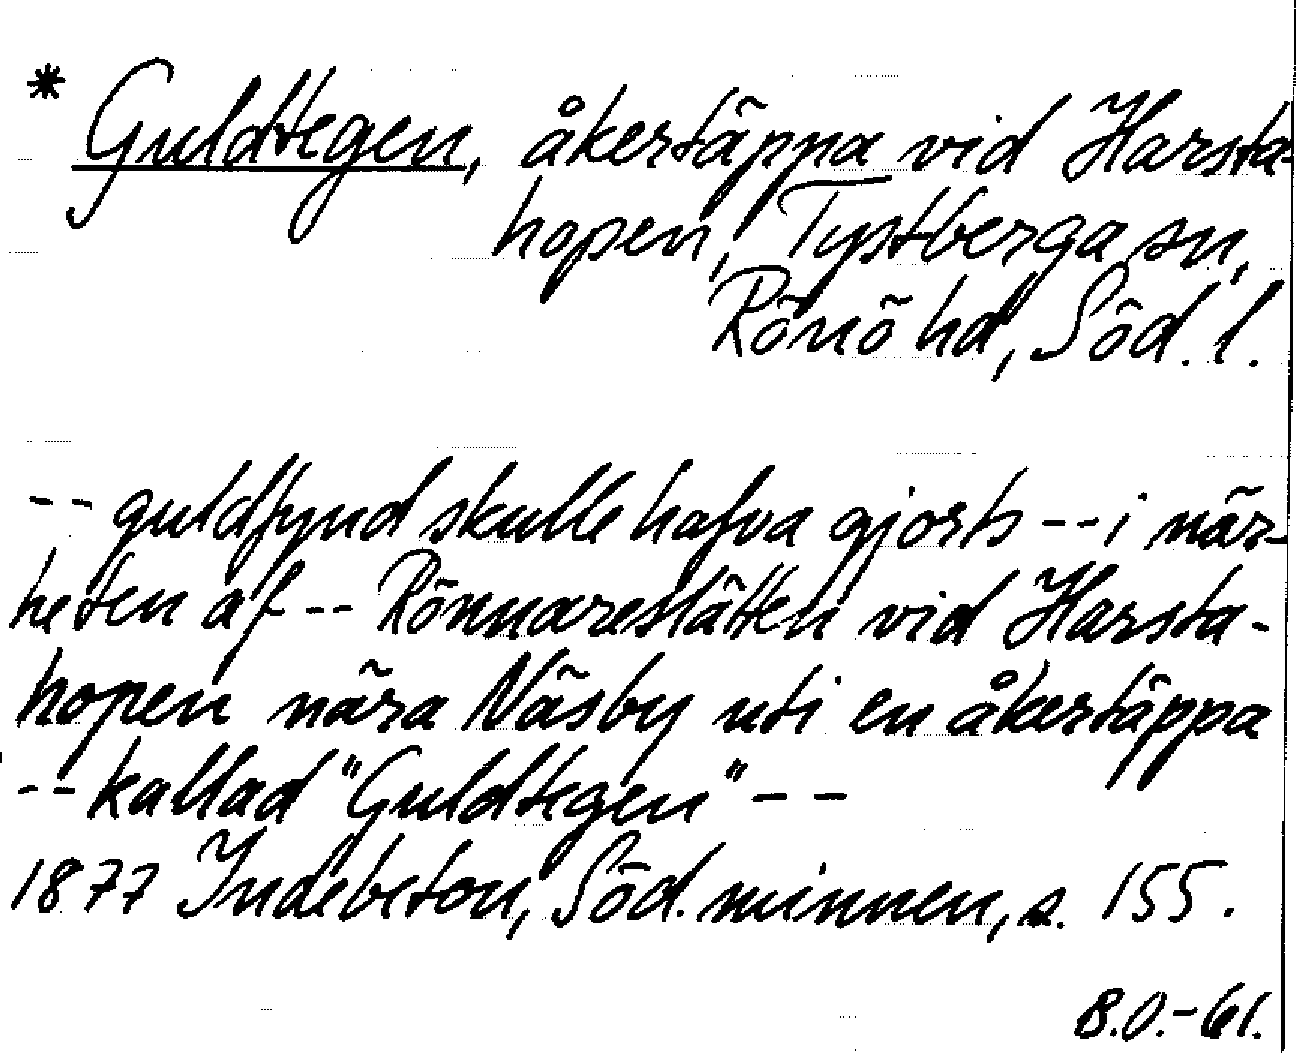 * Guldtegen, åkertäppa vid Harsta-
hopen, Tystberga sn,
Rönö hd, Söd. l.
-- guldfynd skulle hafva gjorts -- i när-
heten af -- Rönnareslätten vid Harsta-
hopen nära Näsby uti en åkertäppa
-- kallad "Guldtegen" --
1877 Indebetou, Söd. minnen, s. 155.
B.O.-61.